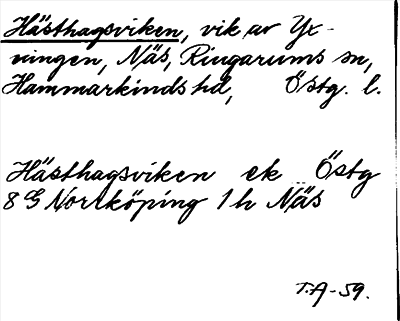 Hästhagsviken, vik av Yx-
ningen, Näs, Ringarums sn,
Hammarkinds hd, Östg. l.
Hästhagsviken ek Östg
8 G Norrköping 1 h Näs
T.A-59.